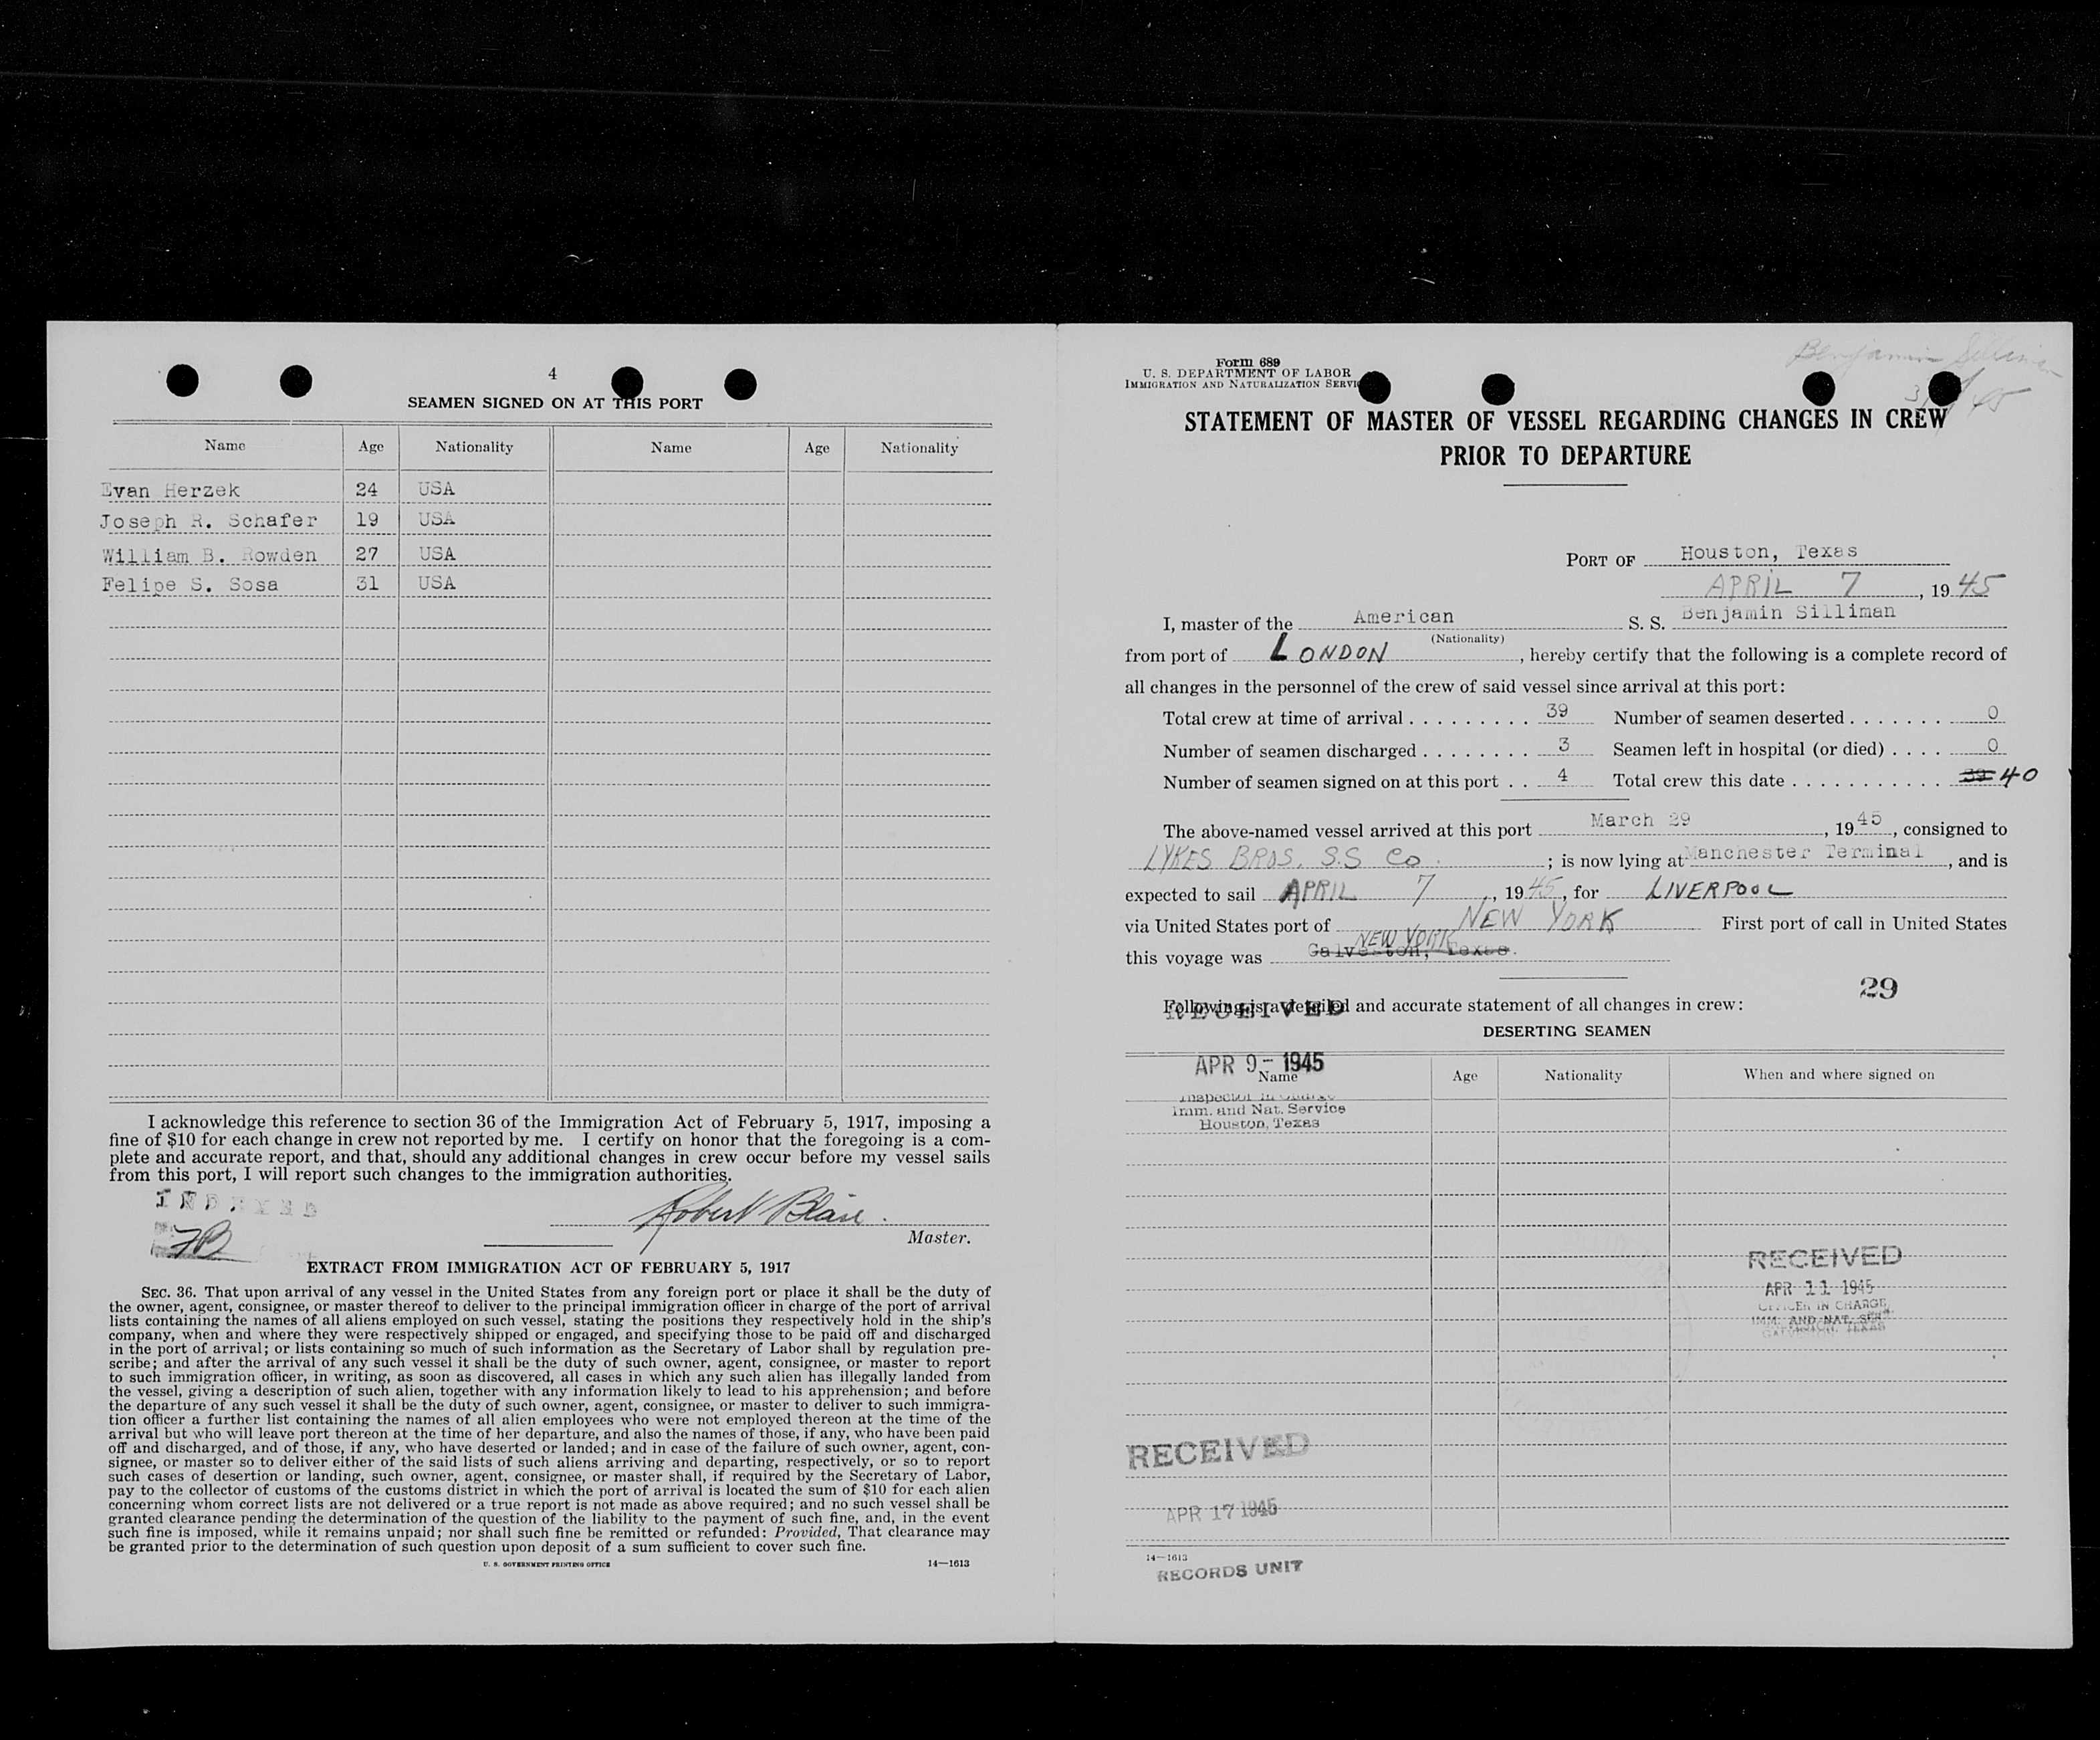 4
SEAMEN SIGNED ON AT THIS PORT
Name Age Nationality Name Age Nationality
Evan Herzek 24 USA
Joseph R. Schafer 19 USA
William B. Rowden 27 USA
Felipe S. Sosa 31 USA
I acknowledge this reference to section 36 of the Immigration Act of February 5, 1917, imposing a
fine of $10 for each change in crew not reported by me. I certify on honor that the foregoing is a com-
plete and accurate report, and that, should any additional changes in crew occur before my vessel sails
from this port, I will report such changes to the immigration authorities.
INDEXED
Robert Blair.
Master.
EXTRACT FROM IMMIGRATION ACT OF FEBRUARY 5, 1917
SEC. 36. That upon arrival of any vessel in the United States from any foreign port or place it shall be the duty of
the owner, agent, consignee, or master thereof to deliver to the principal immigration officer in charge of the port of arrival
lists containing the names of all aliens employed on such vessel, stating the positions they respectively hold in the ship's
company, when and where they were respectively shipped or engaged, and specifying those to be paid off and discharged
in the port of arrival; or lists containing so much of such information as the Secretary of Labor shall by regulation pre-
scribe; and after the arrival of any such vessel it shall be the duty of such owner, agent, consignee, or master to report
to such immigration officer, in writing, as soon as discovered, all cases in which any such alien has illegally landed from
the vessel, giving a description of such alien, together with any information likely to lead to his apprehension; and before
the departure of any such vessel it shall be the duty of such owner, agent, consignee, or master to deliver to such immigra-
tion officer a further list containing the names of all alien employees who were not employed thereon at the time of the
arrival but who will leave port thereon at the time of her departure, and also the names of those, if any, who have been paid
off and discharged, and of those, if any, who have deserted or landed; and in case of the failure of such owner, agent, con-
signee, or master so to deliver either of the said lists of such aliens arriving and departing, respectively, or so to report
such cases of desertion or landing, such owner, agent, consignee, or master shall, if required by the Secretary of Labor,
pay to the collector of customs of the customs district in which the port of arrival is located the sum of $10 for each alien
concerning whom correct lists are not delivered or a true report is not made as above required; and no such vessel shall be
granted clearance pending the determination of the question of the liability to the payment of such fine, and, in the event
such fine is imposed, while it remains unpaid; nor shall such fine be remitted or refunded: Provided, That clearance may
be granted prior to the determination of such question upon deposit of a sum sufficient to cover such fine.
U. S. GOVERNMENT PRINTING OFFICE 14—1613
Form 689
U. S. DEPARTMENT OF LABOR
IMMIGRATION AND NATURALIZATION SERVICE
Benjamin Silliman
STATEMENT OF MASTER OF VESSEL REGARDING CHANGES IN CREW
PRIOR TO DEPARTURE
PORT OF Houston, Texas
APRIL 7, 1945
I, master of the American S. S. Benjamin Silliman
(Nationality)
from port of LONDON, hereby certify that the following is a complete record of
all changes in the personnel of the crew of said vessel since arrival at this port:
Total crew at time of arrival . . . . . . . . . 39 Number of seamen deserted . . . . . . . 0
Number of seamen discharged . . . . . . . . 3 Seamen left in hospital (or died) . . . . 0
Number of seamen signed on at this port . . 4 Total crew this date . . . . . . . . . . . 39 40
The above-named vessel arrived at this port March 29, 1945, consigned to
LYKES BROS. S.S Co. ; is now lying at Manchester Terminal, and is
expected to sail APRIL 7, 1945, for LIVERPOOL
via United States port of NEW YORK First port of call in United States
NEW YORK
this voyage was Galveston, Texas.
29
Following is a detailed and accurate statement of all changes in crew:
RECEIVED
DESERTING SEAMEN
APR 9- 1945
Name Age Nationality When and where signed on
Inspector in Charge
Imm. and Nat. Service
Houston, Texas
RECEIVED
APR 11 1945
OFFICER IN CHARGE
IMM. AND NAT. SER.
GALVESTON, TEXAS
RECEIVED
APR 17 1945
14—1613
RECORDS UNIT